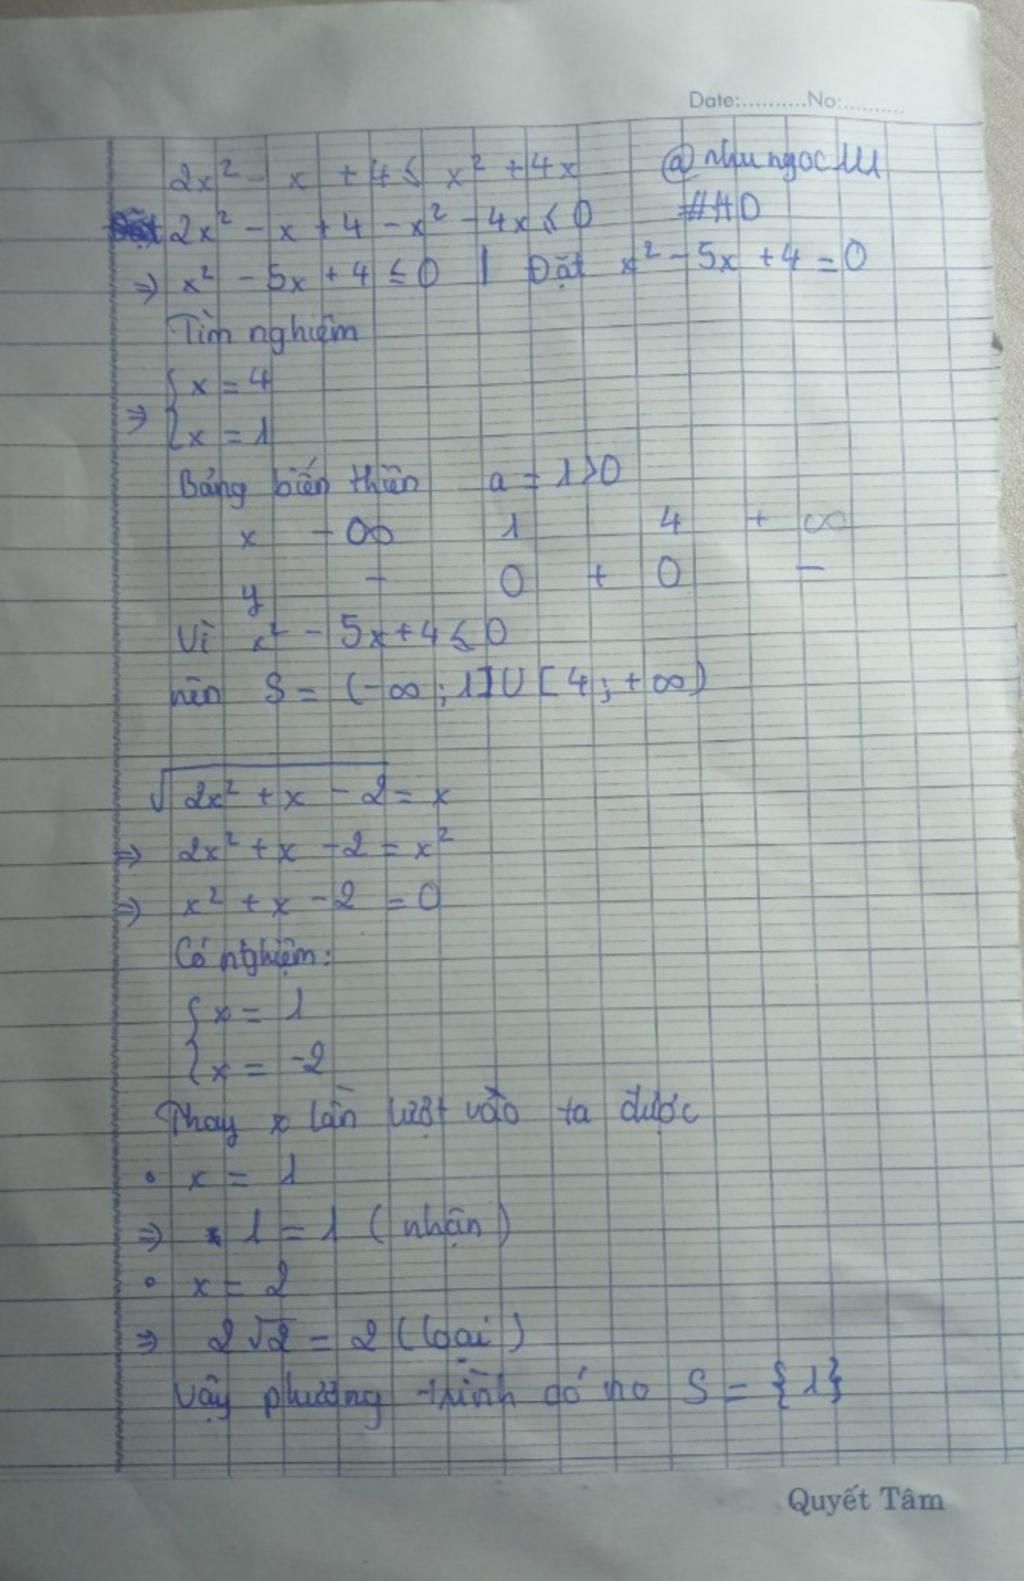 Date:..........No:..........
2x² - x + 4 ≤ x² + 4x @nhungocllll
2x² - x + 4 - x² - 4x ≤ 0 ##HD
⇒ x² - 5x + 4 ≤ 0 | Đặt x² - 5x + 4 = 0
Tìm nghiệm
⇒ { x = 4
x = 1
Bảng biến thiên a = 1 > 0
x - ∞ 1 4 + ∞
y - 0 + 0 -
Vì x² - 5x + 4 ≤ 0
nên S = (-∞; 1] U [4; +∞)
√2x² + x - 2 = x
⇒ 2x² + x - 2 = x²
⇒ x² + x - 2 = 0
Có nghiệm:
{ x = 1
x = -2
Thay x lần lượt vào ta được
• x = 1
⇒ 1 = 1 (nhận)
• x = 2
⇒ 2√2 = 2 (loại)
Vậy phương trình có no S = {1}
Quyết Tâm